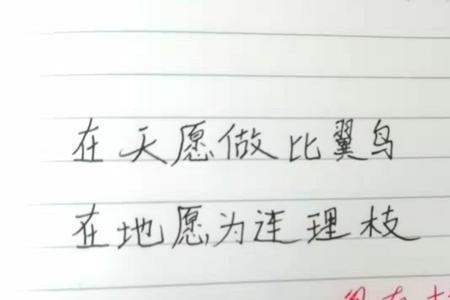 在天愿做比翼鸟
在地愿为连理枝